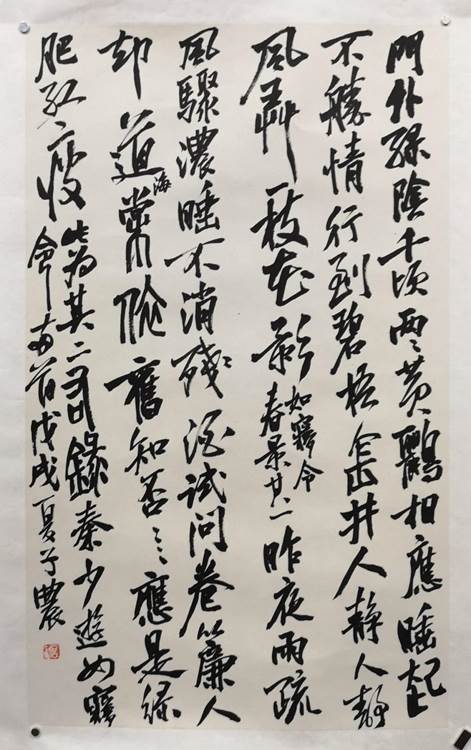 門外綠陰千頃兩〻黃鸝相應睡起
不勝情行到碧梧金井人靜人靜
風弄一枝花影如夢令春景其一昨夜雨疏
風驟濃睡不消殘〻酒試問卷簾人
却道海棠依舊知否〻〻應是綠
肥紅〻瘦此為其二錄秦少遊如夢
令兩首戊戌夏農